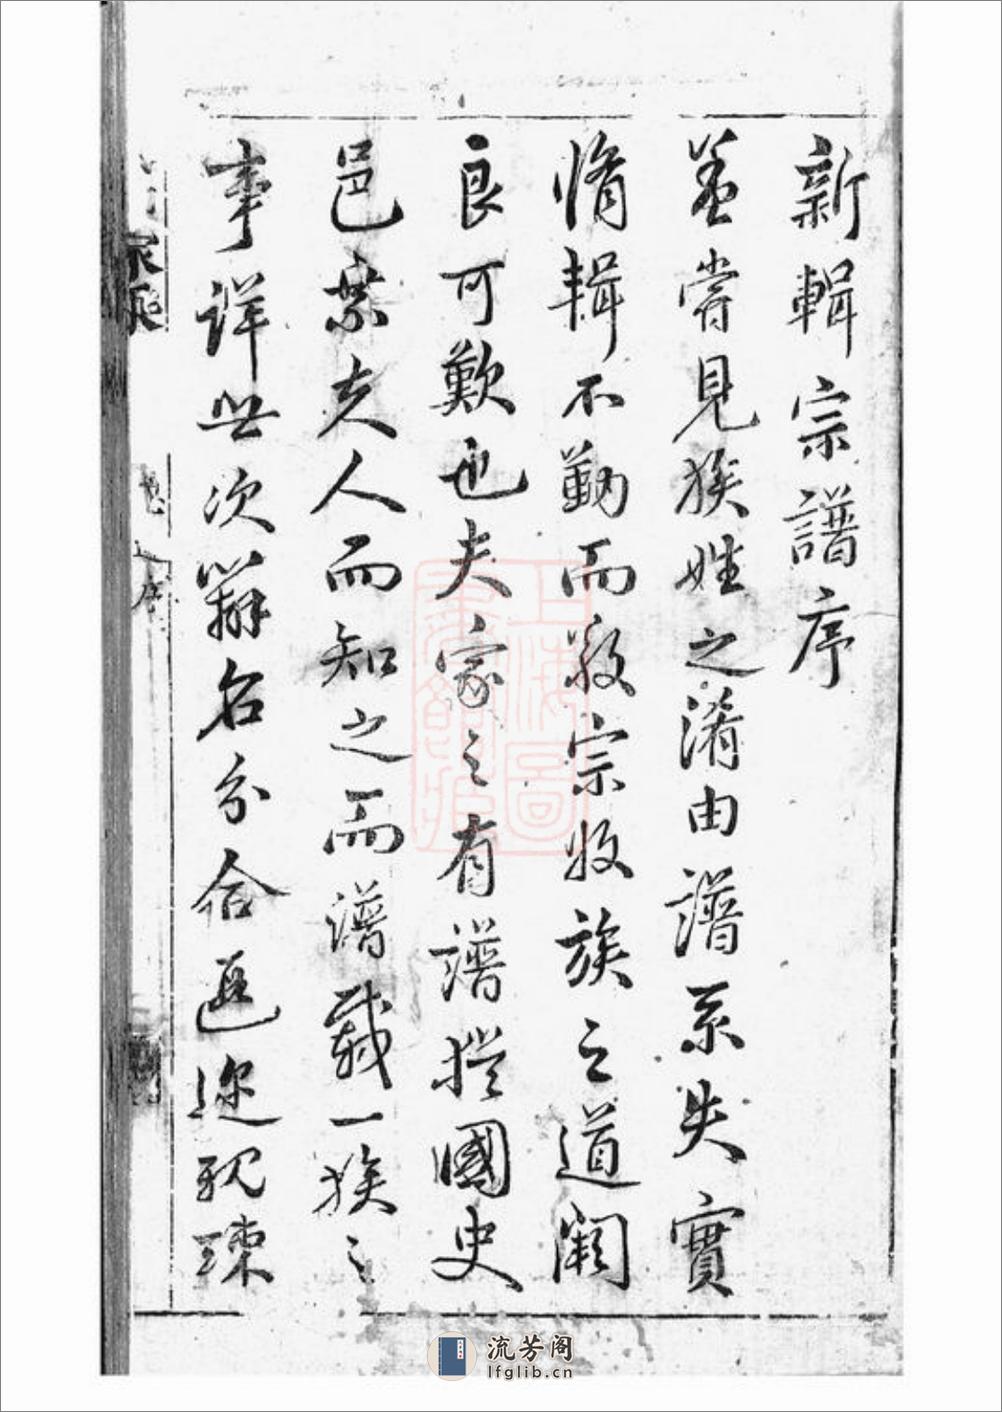 新輯宗譜序
盖嘗見族姓之淆由譜系失實
脩輯不勤而敦宗收族之道闕
良可歎也夫家之有譜猶國史
邑乗夫人而知之而譜載一族之
事詳世次辯名分合遐迩親踈
上海圖書館藏
流芳阁
lfglib.cn